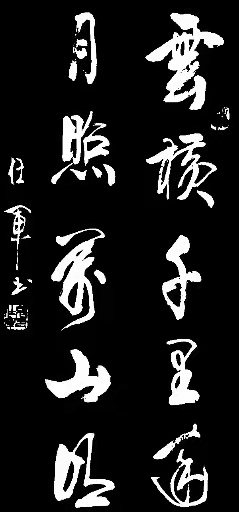 雲橫千里遠
月照萬山明
任軍书